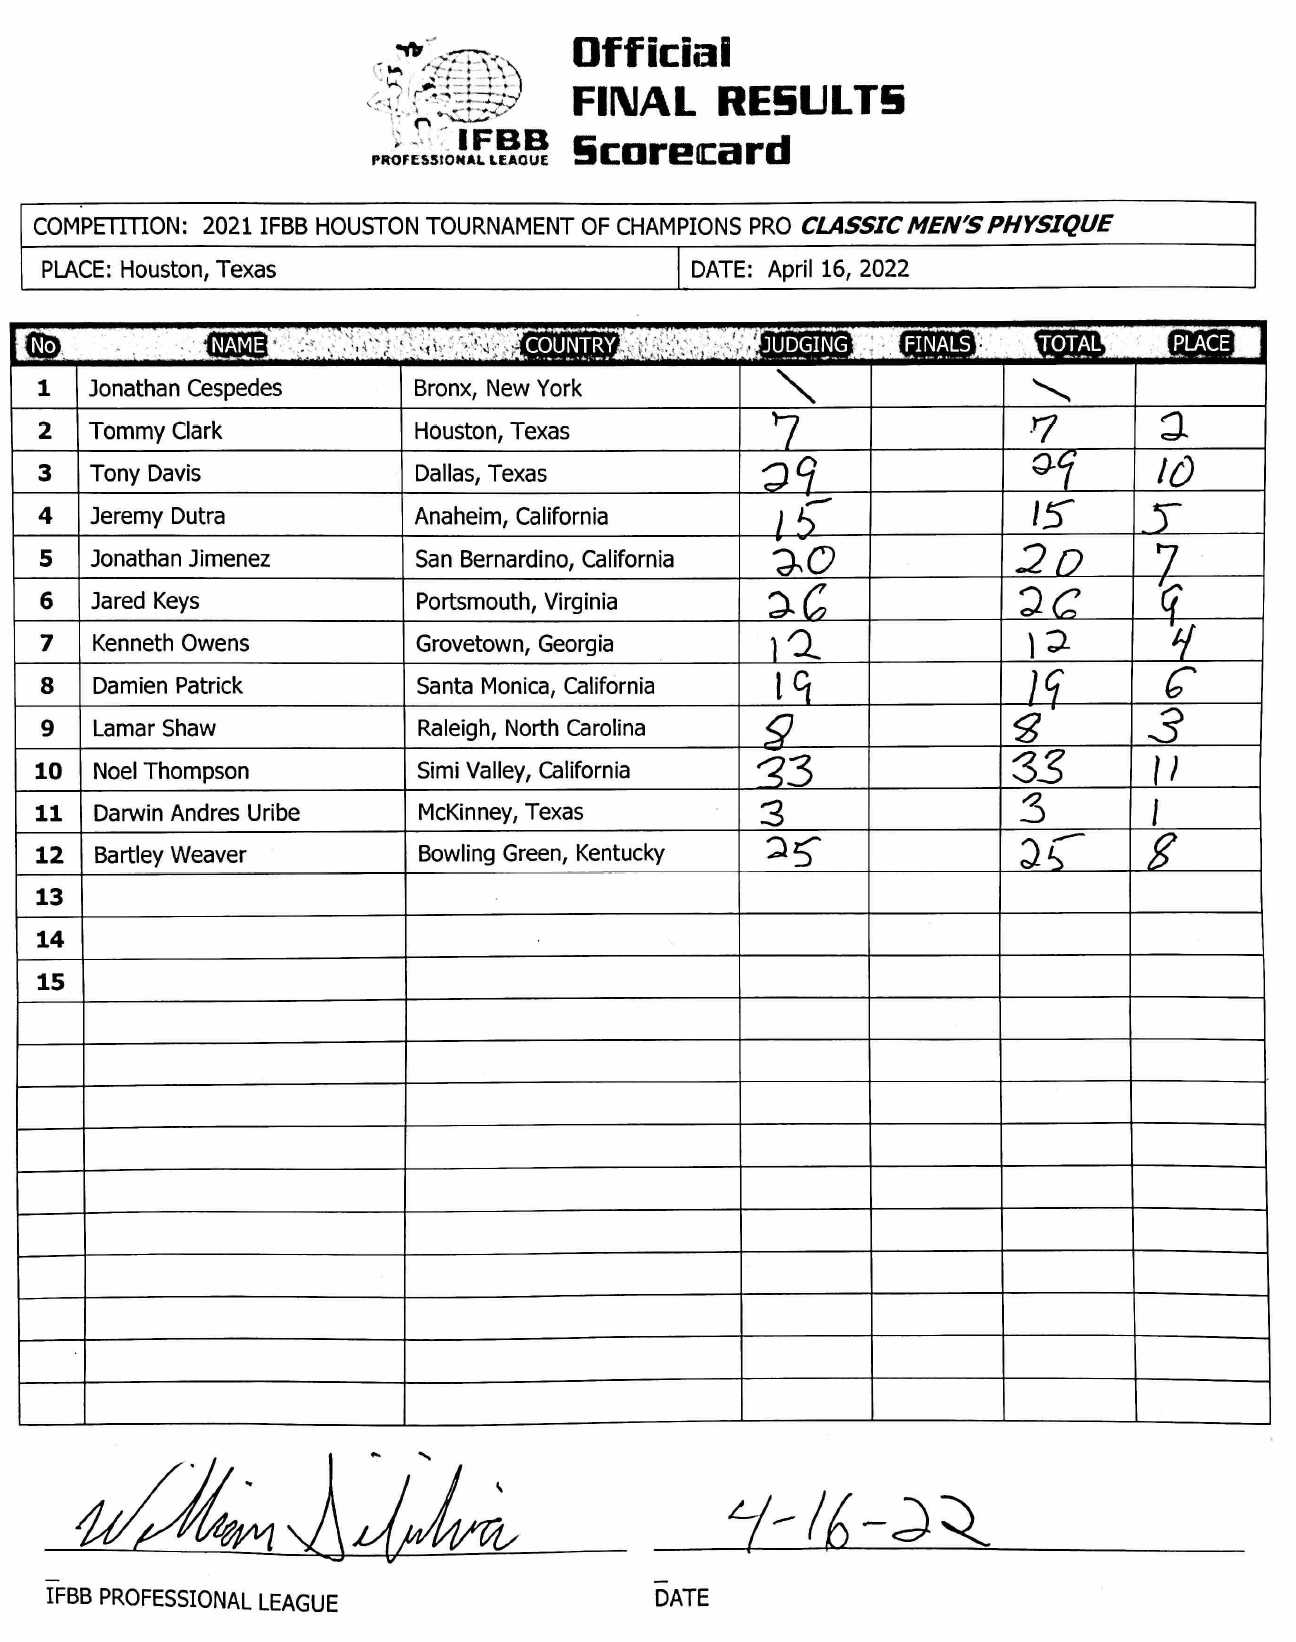 Official
FINAL RESULTS
Scorecard
IFBB
PROFESSIONAL LEAGUE
COMPETITION: 2021 IFBB HOUSTON TOURNAMENT OF CHAMPIONS PRO CLASSIC MEN'S PHYSIQUE
PLACE: Houston, Texas DATE: April 16, 2022
No NAME COUNTRY JUDGING FINALS TOTAL PLACE
1 Jonathan Cespedes Bronx, New York \ \
2 Tommy Clark Houston, Texas 7 7 2
3 Tony Davis Dallas, Texas 29 29 10
4 Jeremy Dutra Anaheim, California 15 15 5
5 Jonathan Jimenez San Bernardino, California 20 20 7
6 Jared Keys Portsmouth, Virginia 26 26 9
7 Kenneth Owens Grovetown, Georgia 12 12 4
8 Damien Patrick Santa Monica, California 19 19 6
9 Lamar Shaw Raleigh, North Carolina 8 8 3
10 Noel Thompson Simi Valley, California 33 33 11
11 Darwin Andres Uribe McKinney, Texas 3 3 1
12 Bartley Weaver Bowling Green, Kentucky 25 25 8
13
14
15
William 4-16-22
IFBB PROFESSIONAL LEAGUE DATE